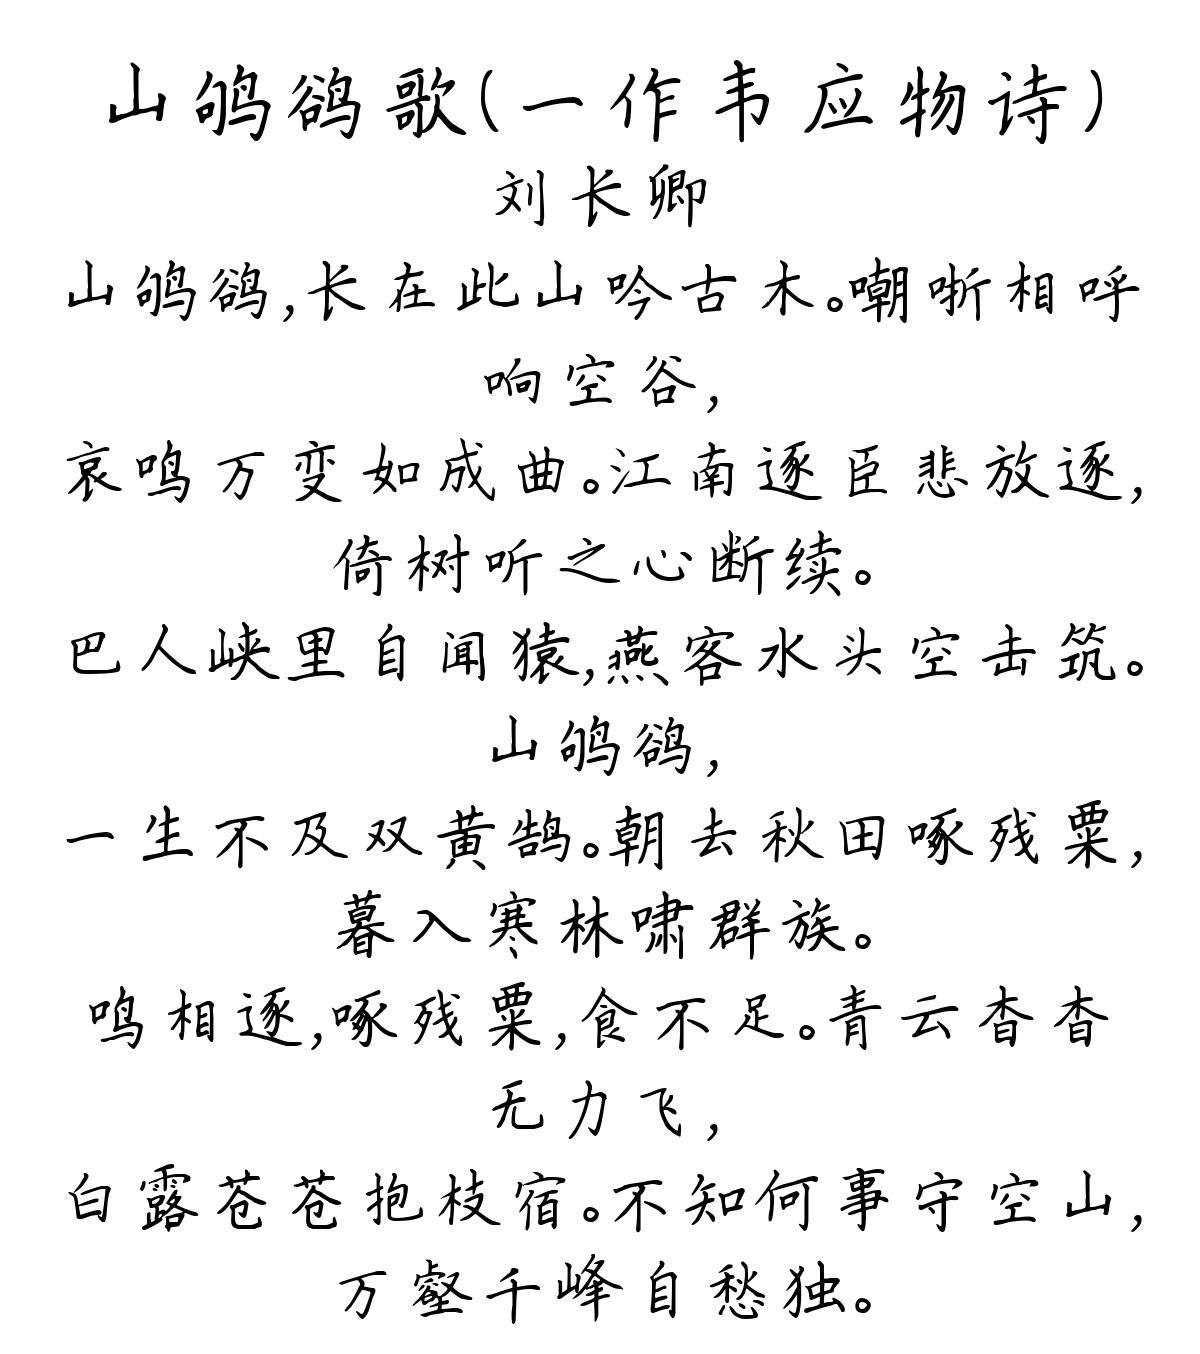 山鸲鹆歌(一作韦应物诗)
刘长卿
山鸲鹆,长在此山吟古木。嘲哳相呼
响空谷,
哀鸣万变如成曲。江南逐臣悲放逐,
倚树听之心断续。
巴人峡里自闻猿,燕客水头空击筑。
山鸲鹆,
一生不及双黄鹄。朝去秋田啄残粟,
暮入寒林啸群族。
鸣相逐,啄残粟,食不足。青云杳杳
无力飞,
白露苍苍抱枝宿。不知何事守空山,
万壑千峰自愁独。